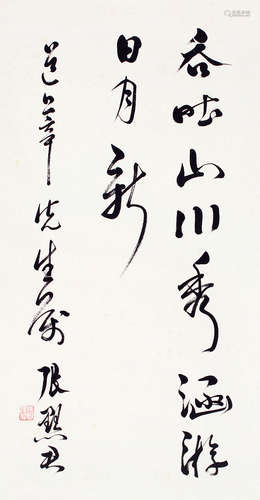 吞吐山川秀涵游
日月新
章先生属 張